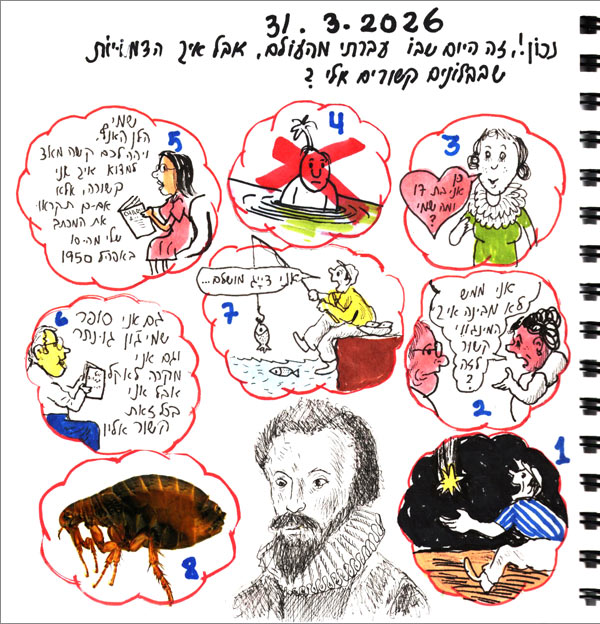 31.3.2026
נכון!, זה היום שבו עברתי מהעולם, אבל איך הדמויות
שבבלונים קשורים אלי ?
5
שמי
הלן האנף.
יהיה לכם קשה מאד
למצוא איך אני
קשורה, אלא
אם-כן תקראו
את המכתב
שלי מה-10
באפריל 1950
4
3
כן
אני בת 17
ומה שמי
?
6
גם אני סופר
שמי ג'ון גינתר
וגם אני
מקרה לאקל
אבל אני
בכל זאת
קשור אליו
7
אני דייג מושלם...
אני ממש
לא מבינה איך
המינגווי
קשור
לזה
?
2
1
8